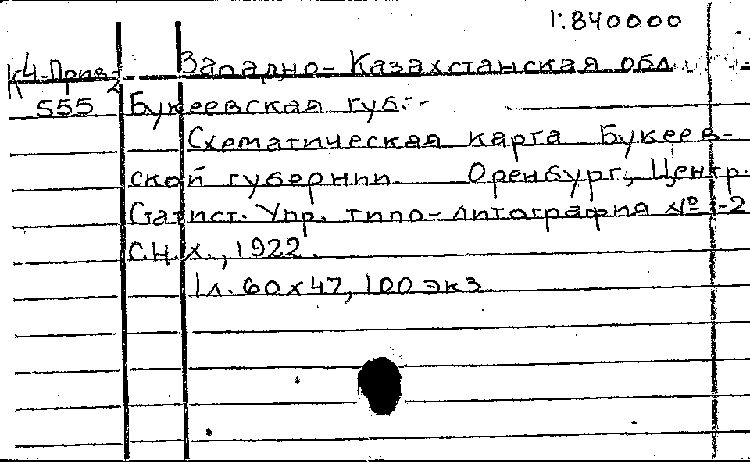 1:840000
К4-Прив-2 Западно-Казахстанская обл.
555 Букеевская губ.-
Схематическая карта Букеев-
ской губернии. Оренбург, Центр.
Статист. Упр. типо-литография №1-2
С.Н.Х., 1922.
1л. 60х47, 100 экз